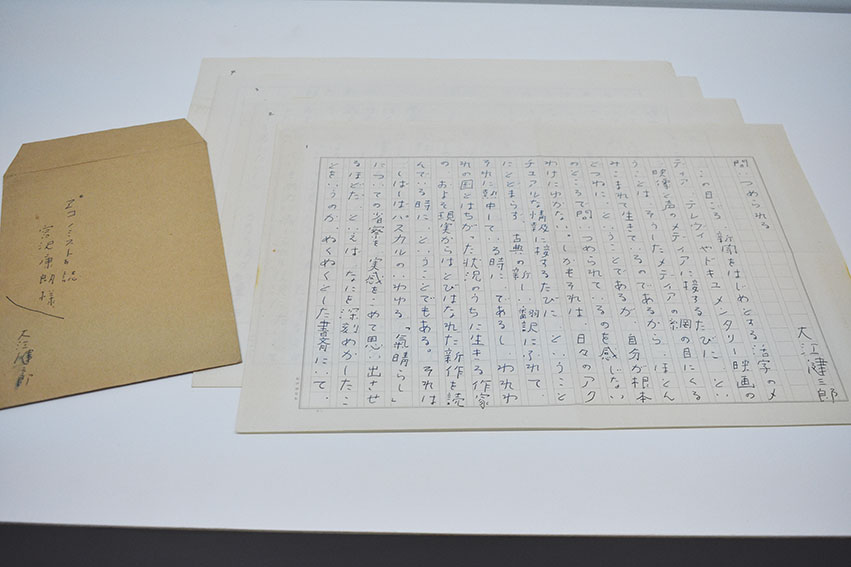 大江健三郎
問いつめられる
この日ごろ、新聞をはじめとする、活字のメ
ディア、テレヴィやドキュメンタリー映画の
映像と声のメディアに接するたびに、とい
うことは、そうしたメディアの網の目にくる
みこまれて生きているのであるから、ほとん
どつねに、ということであるが、自分が根本
のところで問いつめられているのを感じない
わけにゆかない。しかもそれは、日々のアク
チュアルな情報に接するたびに、ということ
にとどまらず、古典の新しい翻訳にふれて、
それに熱中している時に、であるし、われわ
れの国とはちがった状況のうちに生きる作家
の、およそ現実からはとびはなれた新作を読
んでいる時に、ということでもある。それは
しばしばパスカルのいわゆる「氣晴らし」
についての省察を、実感をこめて思い出させ
るほどだ、といえば、なにを深刻めかしたこ
とをいうのか、ぬくぬくとした書斎にいて、
エコノミスト誌
宮沢康朗様
大江健三郎